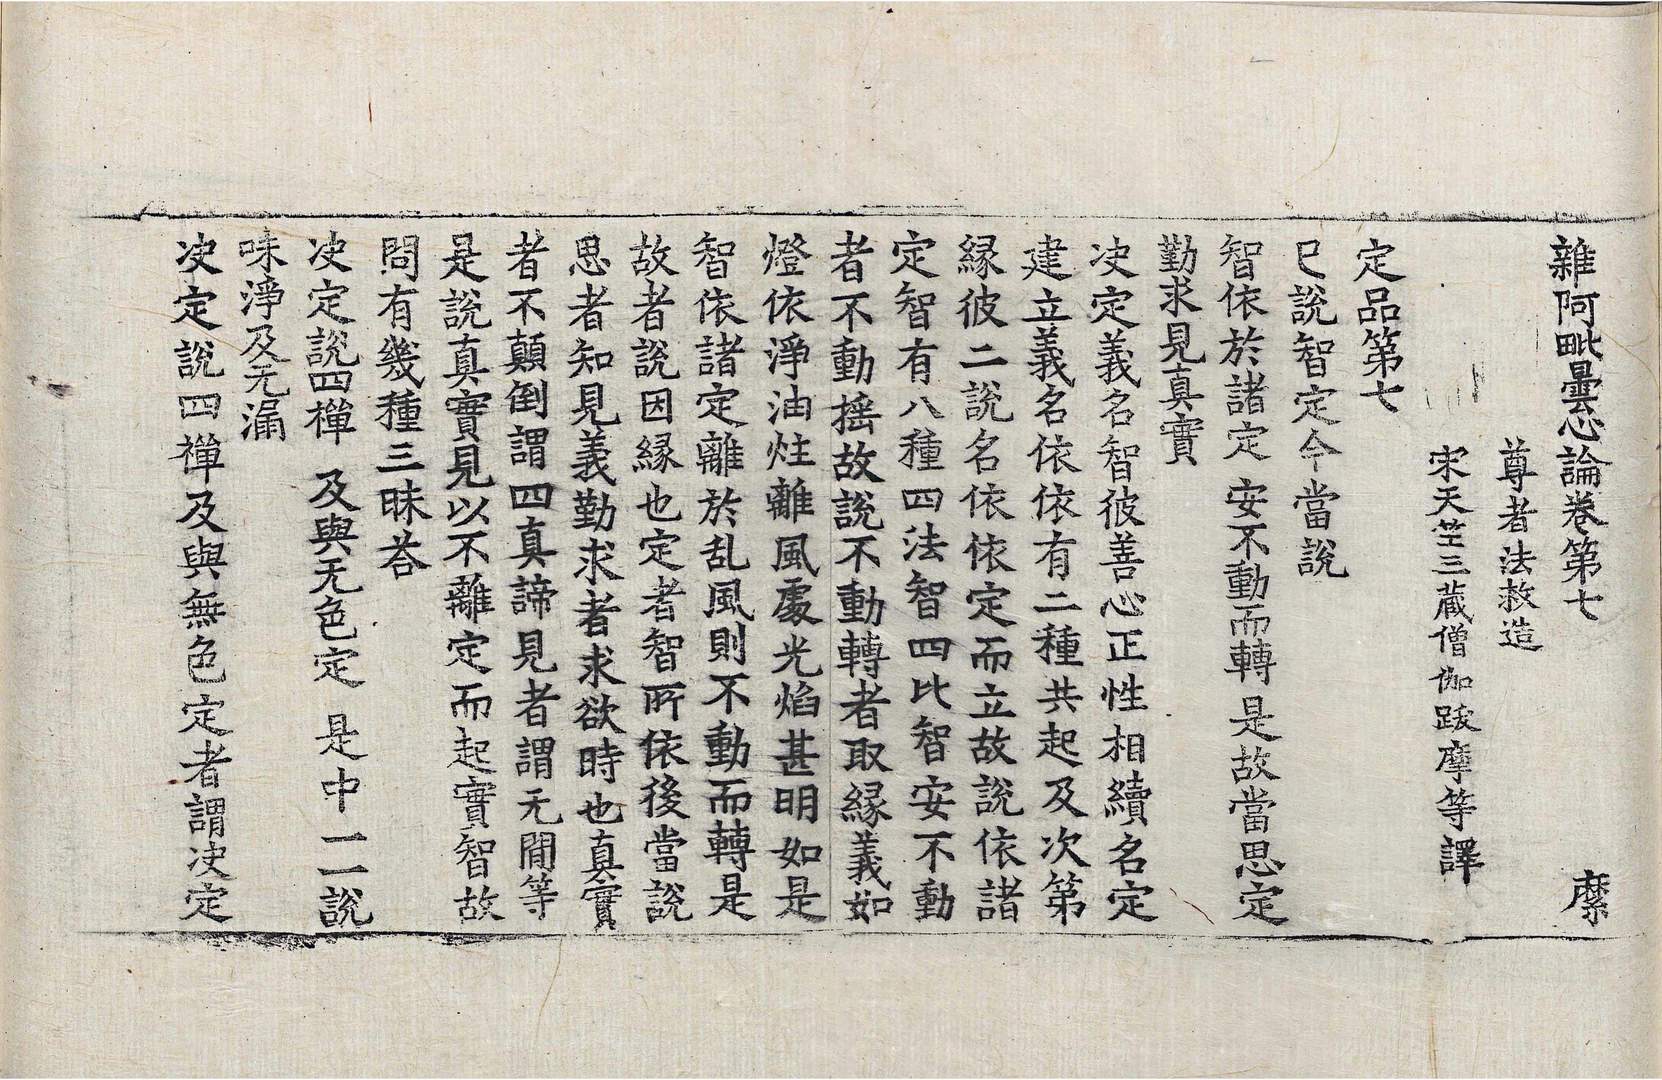 雜阿毗曇心論卷第七　　　縻
尊者法救造
宋天竺三藏僧伽跋摩等譯
定品第七
已說智定今當說
智依於諸定　安不動而轉　是故當思定
勤求見真實
决定義名智彼善心正性相續名定
建立義名依依有二種共起及次第
緣彼二說名依依定而立故說依諸
定智有八種四法智四比智安不動
者不動揺故說不動轉者取緣義如
燈依淨油炷離風處光焰甚明如是
智依諸定離於乱風則不動而轉是
故者說因緣也定者智所依後當說
思者知見義勤求者求欲時也真實
者不顛倒謂四真諦見者謂无閒等
是說真實見以不離定而起實智故
問有幾種三昧荅
决定說四禪　及與无色定　是中一一說
味淨及无漏
决定說四禪及與無色定者謂决定